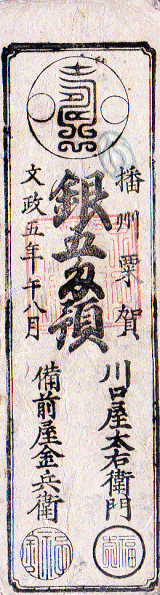 播州粟賀
銀五匁預
文政五年午八月
川口屋太右衛門
備前屋金兵衛